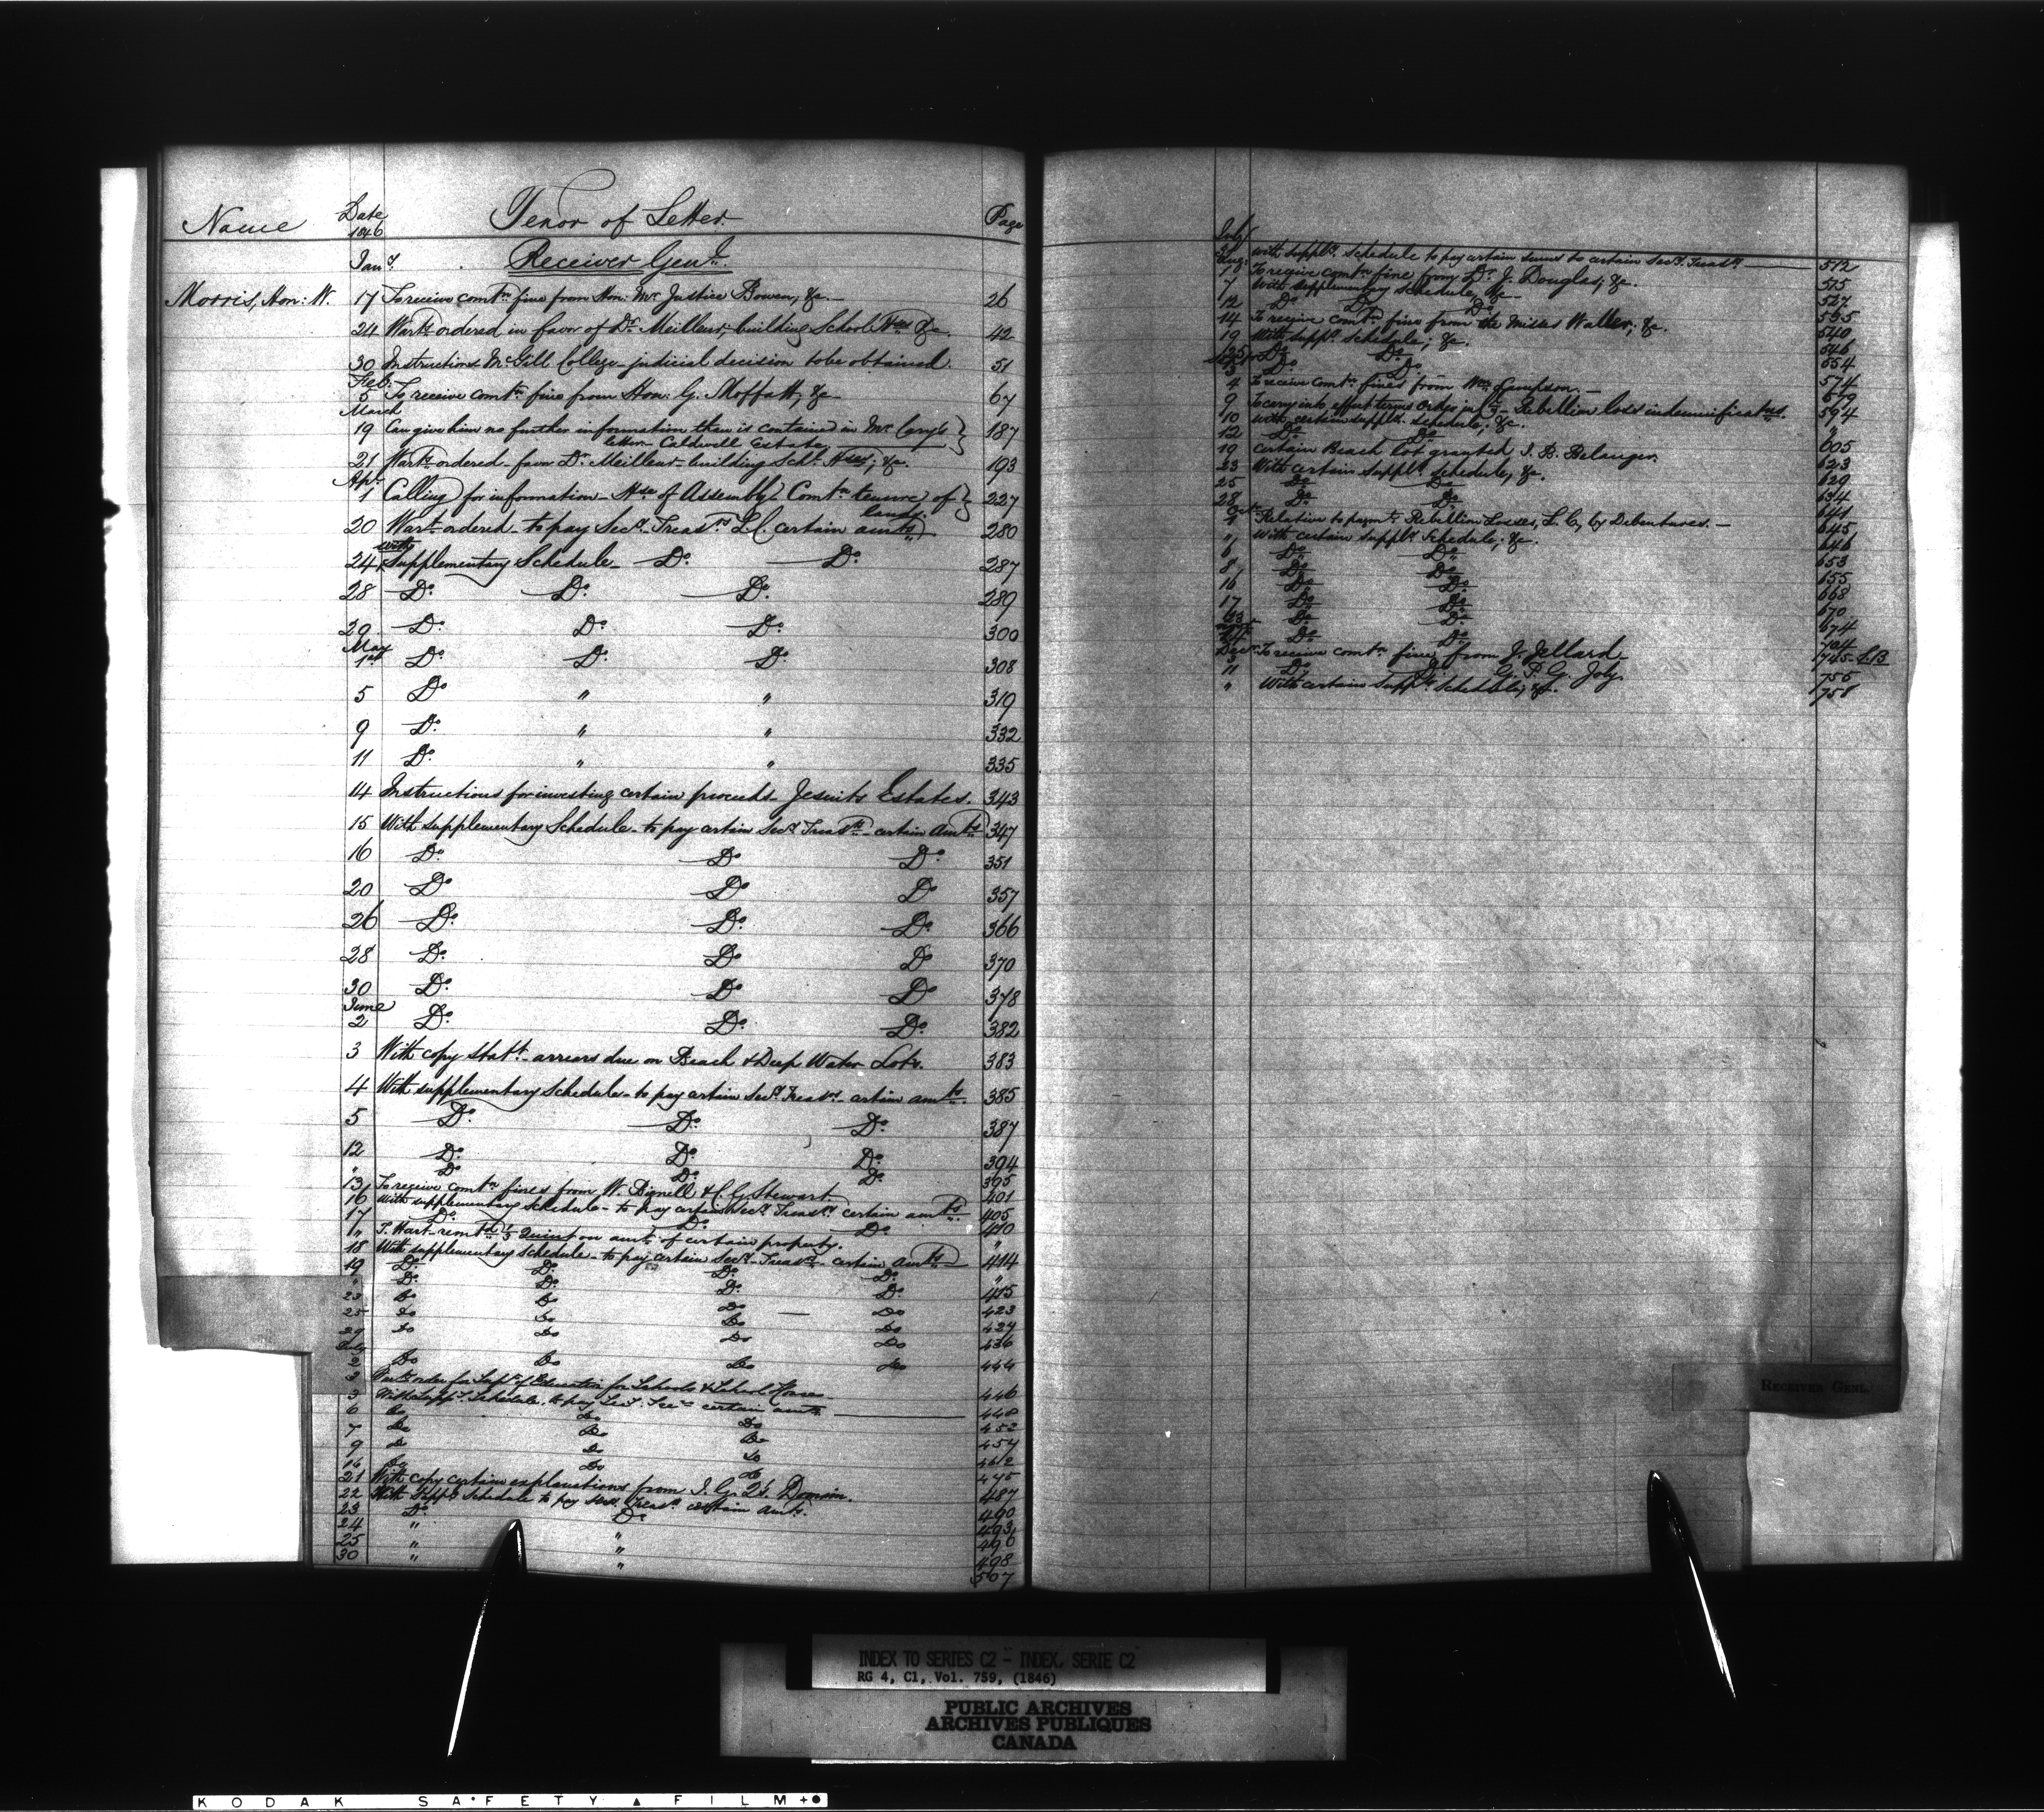 Name Date 1846 Tenor of Letter Page
Jany. Receiver Genl.
Morris, Hon: W. 17 To receive comtn. fine from Hon: Mr Justice Bowen, &c. 26
24 Wart. ordered in favor of Dr. Meilleur, building School Hses &c. 42
30 Instructions McGill College judicial decision to be obtained. 51
Feb:
5 To receive comtn. fine from Hon: G. Moffatt, &c 67
March
19 Can give him no further information than is contained in Mr Cary's 187
letter Caldwell Estate
21 Wart. ordered favor Dr. Meilleur building Schl. Hses; &c. 193
Apl.
1 Calling for information Hse of Assembly Comtn tenure of 227
lands.
20 Wart ordered to pay Secy. Treasrs L.C. certain amts 280
24 with Supplementary Schedule Do. Do. 287
28 Do. Do. Do. 289
29 Do. Do. Do. 300
May
1st Do. Do. Do. 308
5 Do " " 319
9 Do. " " 332
11 Do. " " 335
14 Instructions for investing certain proceeds Jesuits Estates. 343
15 With supplementary Schedule to pay certain Secy. Treasrs certain amts 347
16 Do. Do Do. 351
20 Do Do Do 357
26 Do. Do. Do. 366
28 Do. Do Do 370
30 Do. Do Do 378
June
2 Do. Do. Do. 382
3 With copy Statt. arrears due on Beach & Deep Water Lots. 383
4 With supplementary Schedule to pay certain Secy. Treasrs certain amts. 385
5 Do. Do. Do. 387
12 Do. Do. Do. 394
" Do Do. Do. 395
13 To receive comtn fines from W. Bignell & C. G. Stewart. 401
16 With supplementary Schedule to pay certain Secy. Treasrs certain amts. 405
17 Do. Do. Do. 410
" T. Hart remtd 1/5 Quint on amt. of certain property. "
18 With supplementary Schedule to pay certain Secy. Treasrs certain amts 414
19 Do. Do. Do. Do. "
" Do. Do. Do. Do. 415
23 Do Do Do Do 423
25 Do Do Do Do 427
29 Do Do Do Do 436
July
2 Do Do Do Do 444
3 Wart. order for Supt. of Education for Schools & School Houses 446
3 With Suppy. Schedule to pay certain amts. 448
6 Do Do Do 452
7 Do Do Do 457
9 Do Do Do 462
16 Do Do Do 475
21 With copy certain explanations from I. G. Qs. Domain. 487
22 With Suppy. Schedule to pay Secy. Treasrs certain amts. 490
23 Do. Do. 493
24 " " 496
25 " " 498
30 " " 507
July
31 with supply. schedule to pay certain sums to certain Secy. Treasrs 512
Aug:
1 To receive comtn fine from Dr. J. Douglas, &c.
7 With supplementary schedule, &c 527
12 Do Do Do 535
14 To receive comtn fine from the Misses Waller, &c. 540
19 With supply. schedule; &c. 546
25 Do Do 554
3 Do Do 574
4 To receive comtn. fines from Wm.
9 To carry into effect terms Order in C. Rebellion loss indemnification. 594
10 With certain supply. schedule, &c. "
12 Do Do 605
19 Certain Beach lot granted J. B. Belanger. 623
23 With certain supply. schedule, &c. 629
25 Do Do 634
28 Do Do 641
Oct
1 Relative to paymt. Rebellion Losses, L. C, by Debentures. 645
" With certain supply. Schedule; &c. 646
6 Do Do 653
8 Do Do 655
16 Do Do 668
17 Do Do 670
23 Do Do 674
24 Do Do 704
Decr.
3 To receive comtn fine from J. Jellard 745 L.B
11 Do. G. P. G. Joly. 755
" With certain Supply. schedule, &c. 758
RECEIVER GENL.
INDEX TO SERIES C2 - INDEX, SERIE C2
RG 4, C1, Vol. 759, (1846)
PUBLIC ARCHIVES
ARCHIVES PUBLIQUES
CANADA
KODAK SAFETY FILM